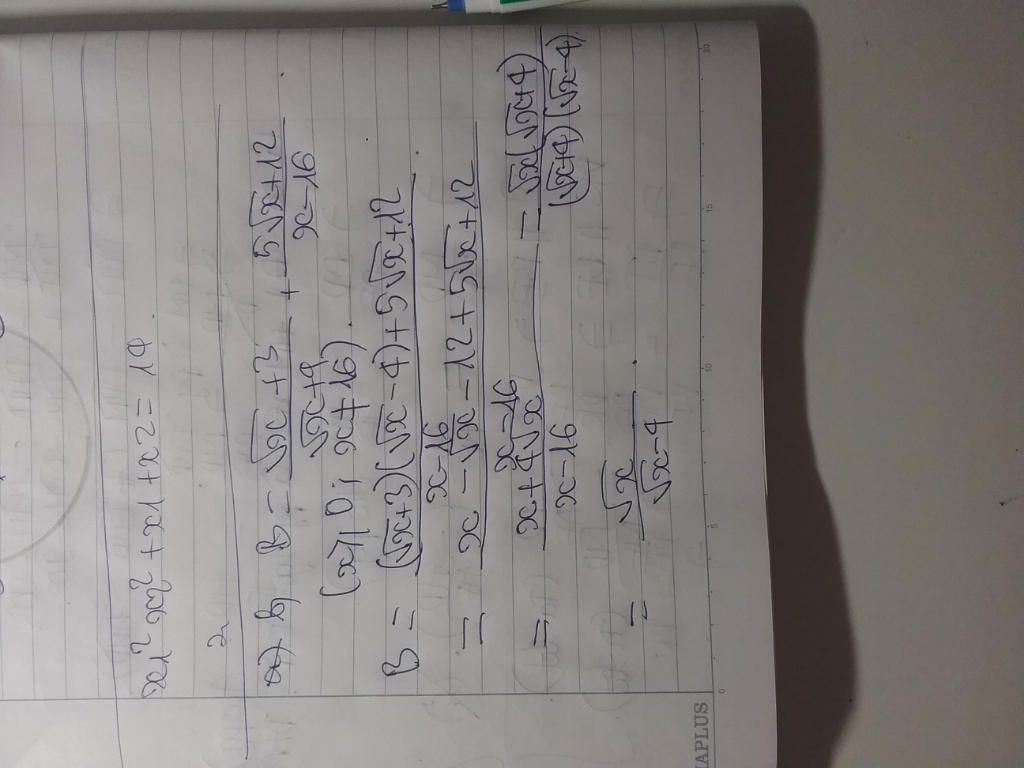 x1² x2² + x1 + x2 = 14.
2
a) b, B = (√x + 3)/(√x + 4) + (5√x + 12)/(x - 16)
(x ≥ 0; x ≠ 16).
B = ((√x + 3)(√x - 4) + 5√x + 12)/(x - 16)
= (x - √x - 12 + 5√x + 12)/(x - 16)
= (x + 4√x)/(x - 16) = (√x(√x + 4))/((√x + 4)(√x - 4))
= √x/(√x - 4).
0 5 10 15 20